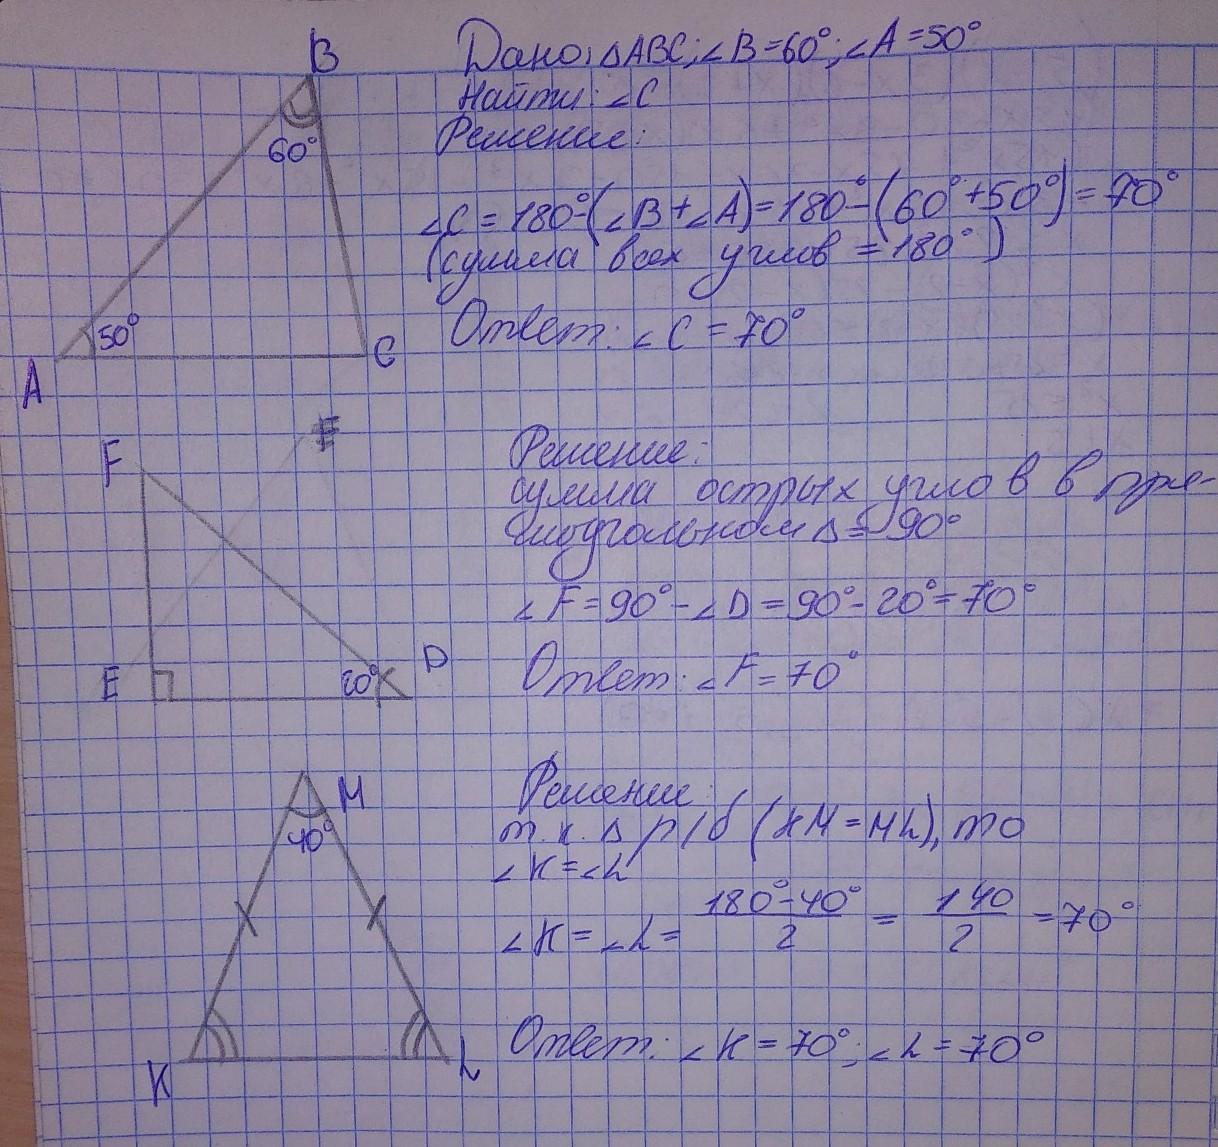 B
Дано: △ABC; ∠B=60°; ∠A=50°
Найти: ∠C
Решение:
60°
∠C = 180°-(∠B+∠A)=180°-(60°+50°)=70°
(сумма всех углов =180°)
50°
Ответ: ∠C=70°
A
C
F
F
Решение:
сумма острых углов в пря-
моугольном △ = 90°
∠F=90°-∠D=90°-20°=70°
E
20°
D
Ответ: ∠F=70°
M
40°
Решение:
т.к. △ р/б (KM=ML), то
∠K=∠L
∠K=∠L= (180°-40°)/2 = 140/2 =70°
Ответ: ∠K=70°; ∠L=70°
K
L